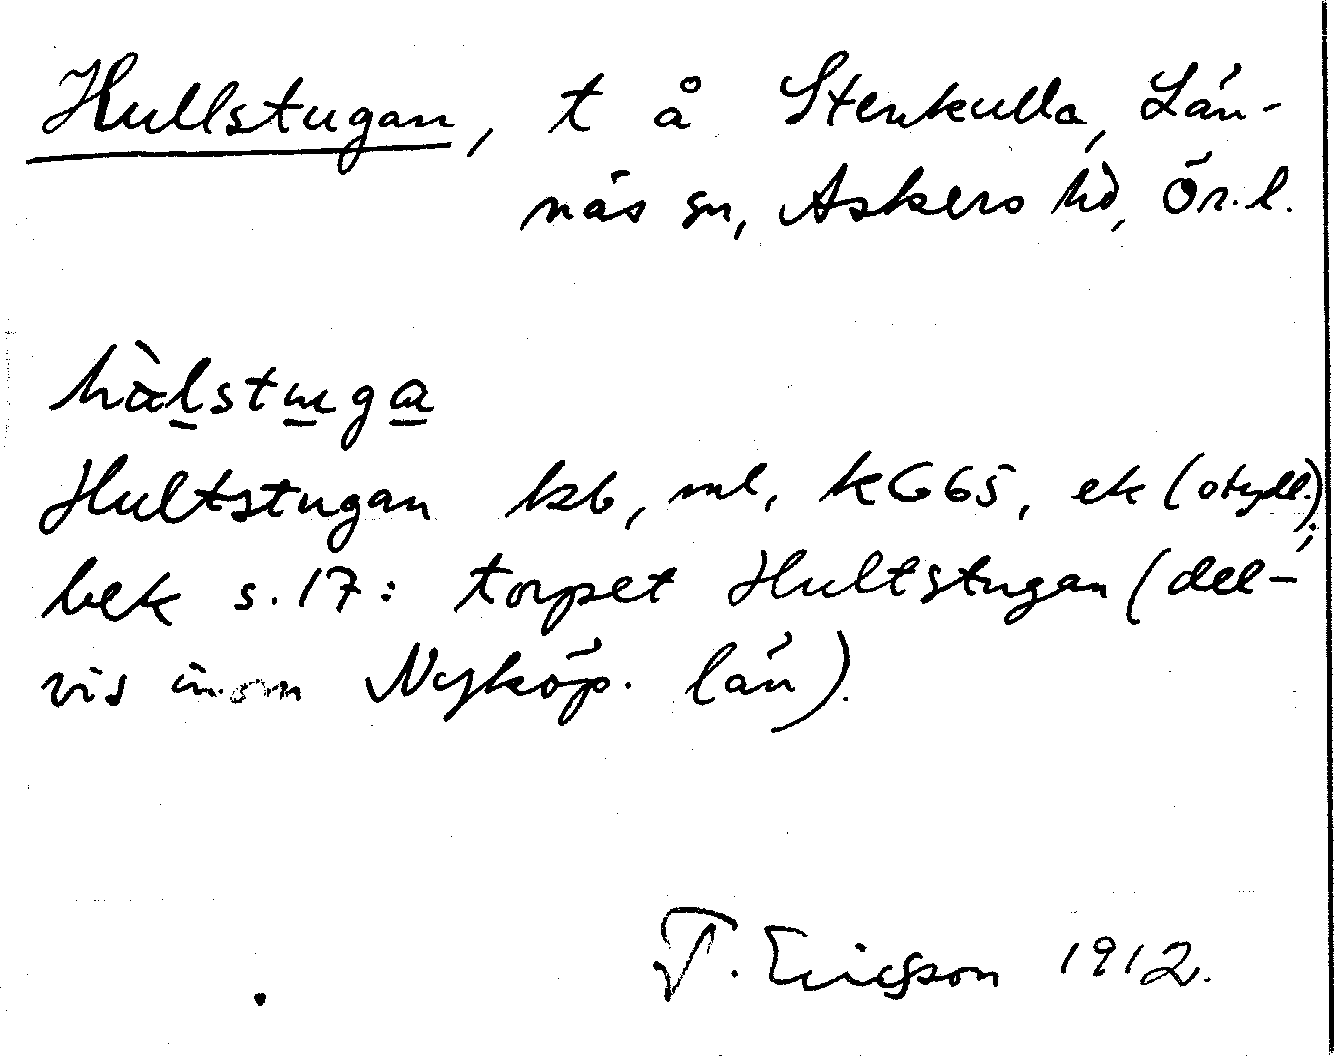 Hullstugan, t å Stenkulla, Län-
näs sn, Askers hd, Ör. l.
hàlstuga
Hultstugan kb, ml, kG65, ek (otydl.);
bek s. 17: torpet Hultstugan (del-
vis inom Nyköp. län).
T. Ericsson 1912.